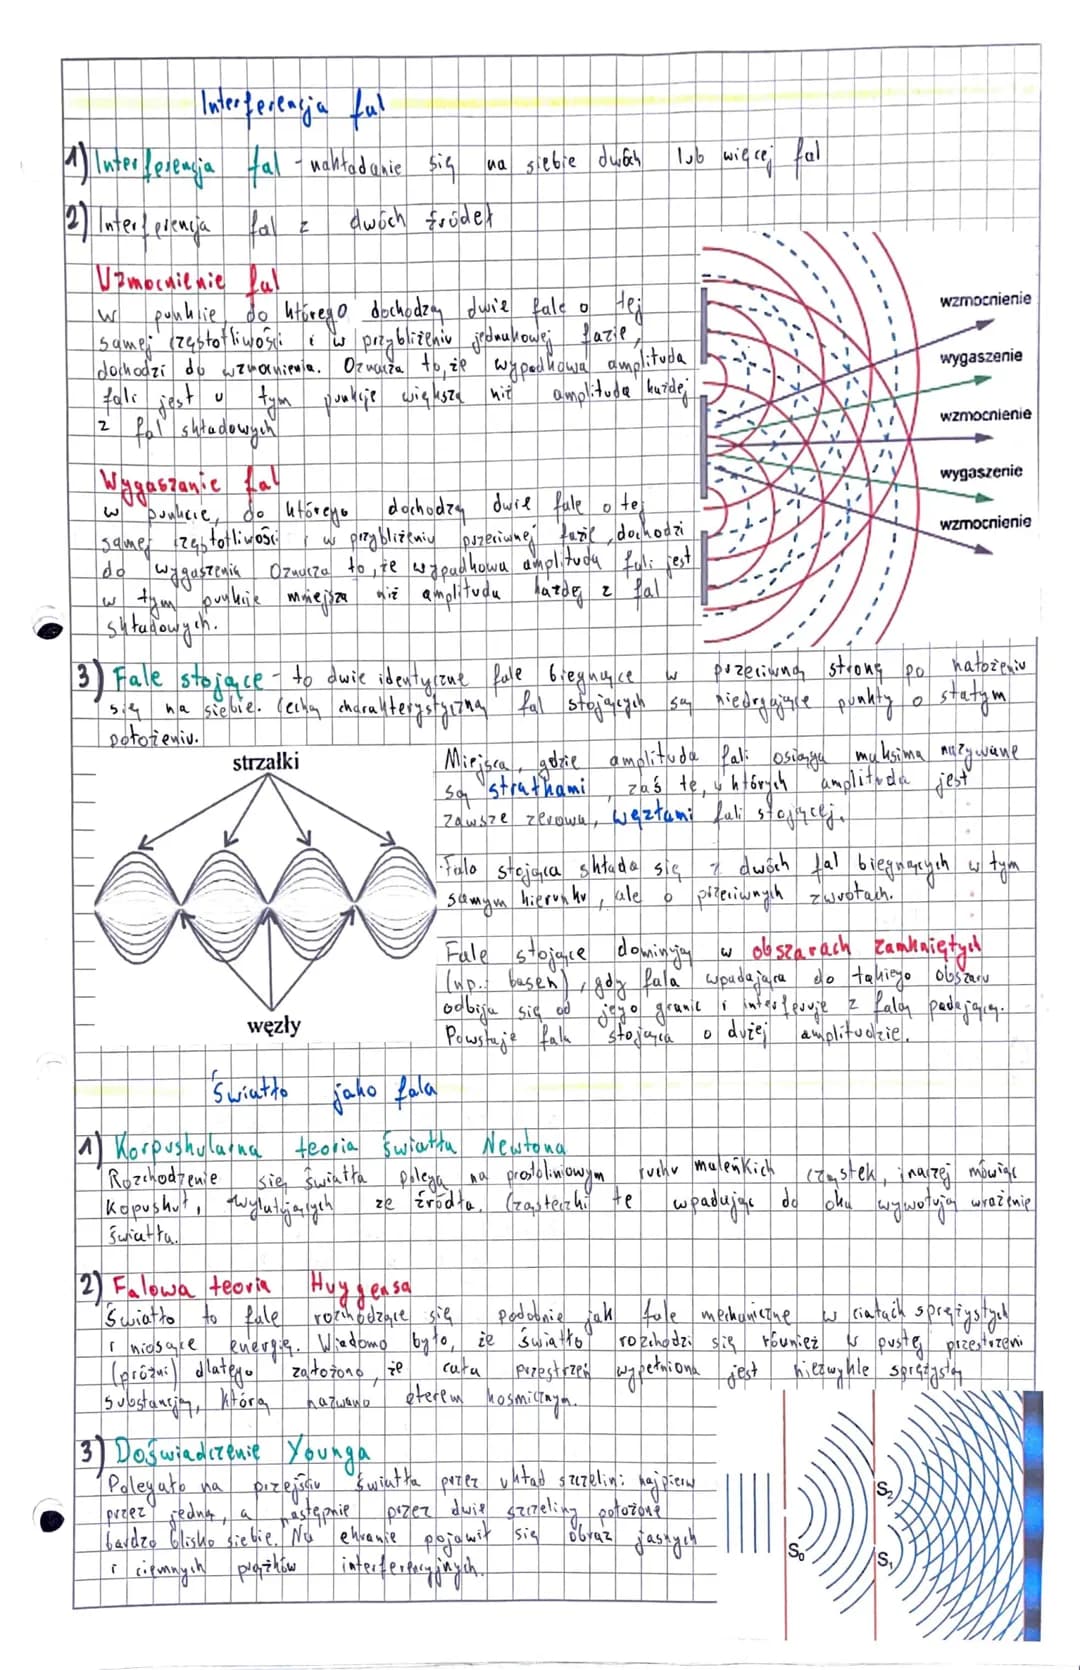 Interferencja fal
1) Interferencja fal - nakładanie się na siebie dwóch lub więcej fal
2) Interferencja fal z dwóch źródeł
Wzmocnienie fal
w punkcie do którego dochodzą dwie fale o tej
samej częstotliwości i w przybliżeniu jednakowej fazie,
dochodzi do wzmocnienia. Oznacza to, że wypadkowa amplituda
fali jest w tym punkcie większa niż amplituda każdej
z fal składowych
wzmocnienie
wygaszenie
wzmocnienie
wygaszenie
wzmocnienie
Wygaszanie fal
w punkcie, do którego dochodzą dwie fale o tej
samej częstotliwości i w przybliżeniu przeciwnej fazie, dochodzi
do wygaszenia Oznacza to, że wypadkowa amplituda fali jest
w tym punkcie mniejsza niż amplituda każdej z fal
składowych.
3) Fale stojące - to dwie identyczne fale biegnące w przeciwną stronę po nałożeniu
się na siebie. Cechą charakterystyczną fal stojących są niedrgające punkty o stałym
położeniu.
strzałki
węzły
Miejsca, gdzie amplituda fali osiąga maksima nazywane
są strzałkami, zaś te, w których amplituda jest
zawsze zerowa, węzłami fali stojącej.
Fala stojąca składa się z dwóch fal biegnących w tym
samym kierunku, ale o przeciwnych zwrotach.
Fale stojące dominują w obszarach zamkniętych
(np.: basen), gdy fala wpadająca do takiego obszaru
odbija się od jego granic i interferuje z falą padającą.
Powstaje fala stojąca o dużej amplitudzie.
Światło jako fala
1) Korpuskularna teoria światła Newtona
Rozchodzenie się światła polega na prostoliniowym ruchu maleńkich cząstek, inaczej mówiąc
kopuskuł, wylatujących ze źródła. Cząsteczki te wpadając do oka wywołują wrażenie
światła.
2) Falowa teoria Huygensa
Światło to fale rozchodzące się podobnie jak fale mechaniczne w ciałach sprężystych
i niosące energię. Wiadomo było, że światło rozchodzi się również w pustej przestrzeni
(próżni) dlatego założono, że cała przestrzeń wypełniona jest niezwykle sprężystą
substancją, którą nazwano eterem kosmicznym.
3) Doświadczenie Younga
Polegało na przejściu światła przez układ szczelin: najpierw
przez jedną, a następnie przez dwie szczeliny położone
bardzo blisko siebie. Na ekranie pojawił się obraz jasnych
i ciemnych prążków interferencyjnych.
S₀
S₂
S₁